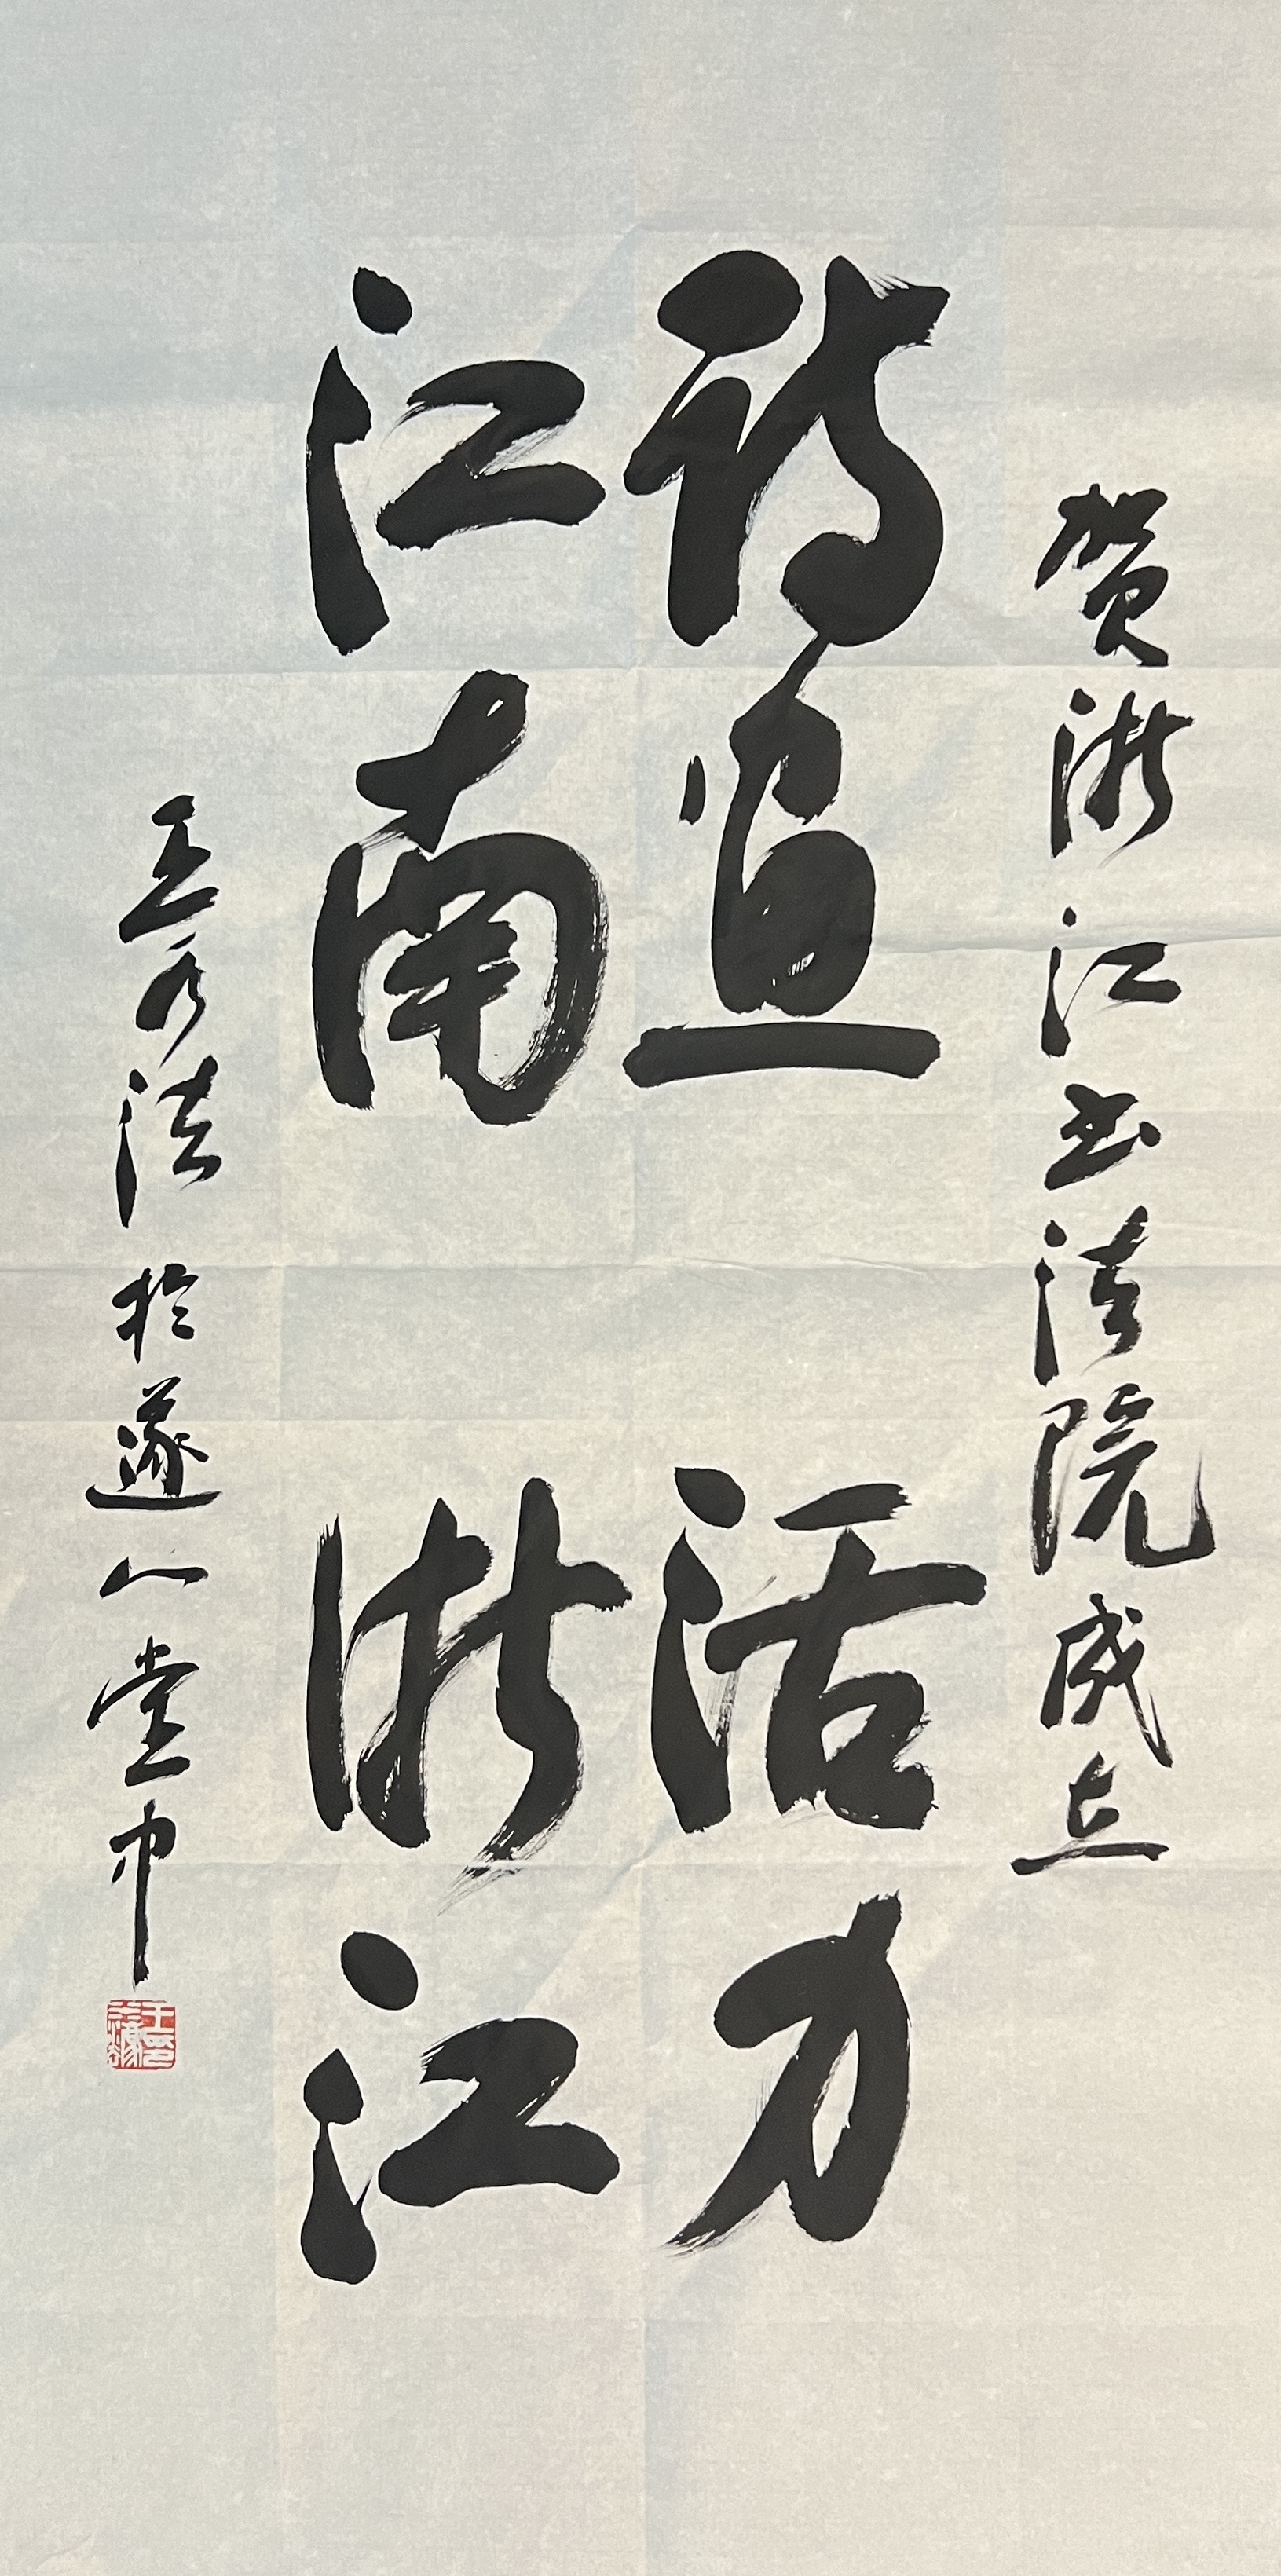 贺浙江书法院成立
诗画活力
江南浙江
王乃法於遂人堂中